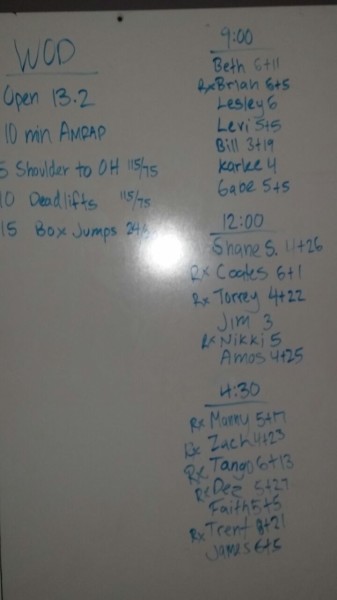 WOD
Open 13.2
10 min AMRAP
5 Shoulder to OH 115/75
10 Deadlifts 115/75
15 Box Jumps
9:00
Beth 6+11
Rx Brian 6+5
Lesley 6
Levi 5+5
Bill 3+19
Karlee 4
Gabe 5+5
12:00
Shane S. 4+26
Rx Coates 6+1
Rx Torrey 4+22
Jim 3
Rx Nikki 5
Amos 4+25
4:30
Rx Manny 5+17
Rx Zach 4+23
Rx Tango 6+13
Rx Dee 5+27
Faith 5+5
Rx Trent 8+21
James 6+5